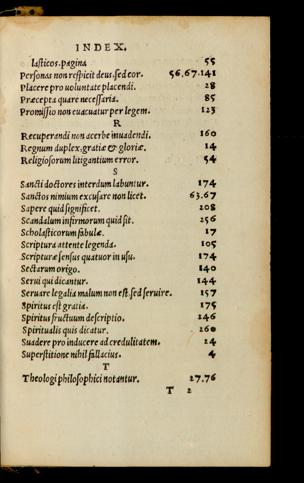 INDEX.
lasticos.pagina 55
Personas non respicit deus, sed cor. 56.67.141
Placere pro uoluntate placendi. 28
Præcepta quare necessaria. 85
Promissio non euacuatur per legem. 123
R
Recuperandi non acerbe inuadendi. 160
Regnum duplex, gratiæ & gloriæ. 14
Religiosorum litigantium error. 54
S
Sancti doctores interdum labuntur. 174
Sanctos nimium excusare non licet. 63.67
Sapere quid significet. 208
Scandalum infirmorum quid sit. 256
Scholasticorum fabulæ. 17
Scriptura attente legenda. 105
Scripturæ sensus quatuor in usu. 174
Sectarum origo. 140
Serui qui dicantur. 144
Seruare legalia malum non est, sed seruire. 157
Spiritus est gratia. 175
Spiritus fructuum descriptio. 246
Spiritualis quis dicatur. 260
Suadere pro inducere ad credulitatem. 24
Superstitione nihil fallacius. 4
T
Theologi philosophici notantur. 27.76
T 2